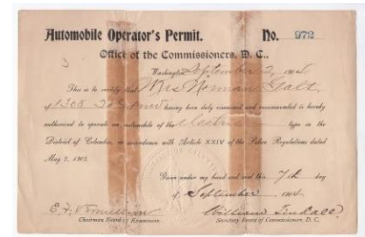 Automobile Operator's Permit. No. 972
Office of the Commissioners, D. C.,
Washington, September 2, 1904
This is to certify that Mrs Norman Galt
of 1308 20th Street having been duly examined and recommended is hereby
authorized to operate an automobile of the Electric type in the
District of Columbia, in accordance with Article XXIV of the Police Regulations dated
May 7, 1902.
Given under my hand and seal this 7th day
of September 1904
Chairman Board of Examiners.
William Tindall
Secretary Board of Commissioners, D. C.